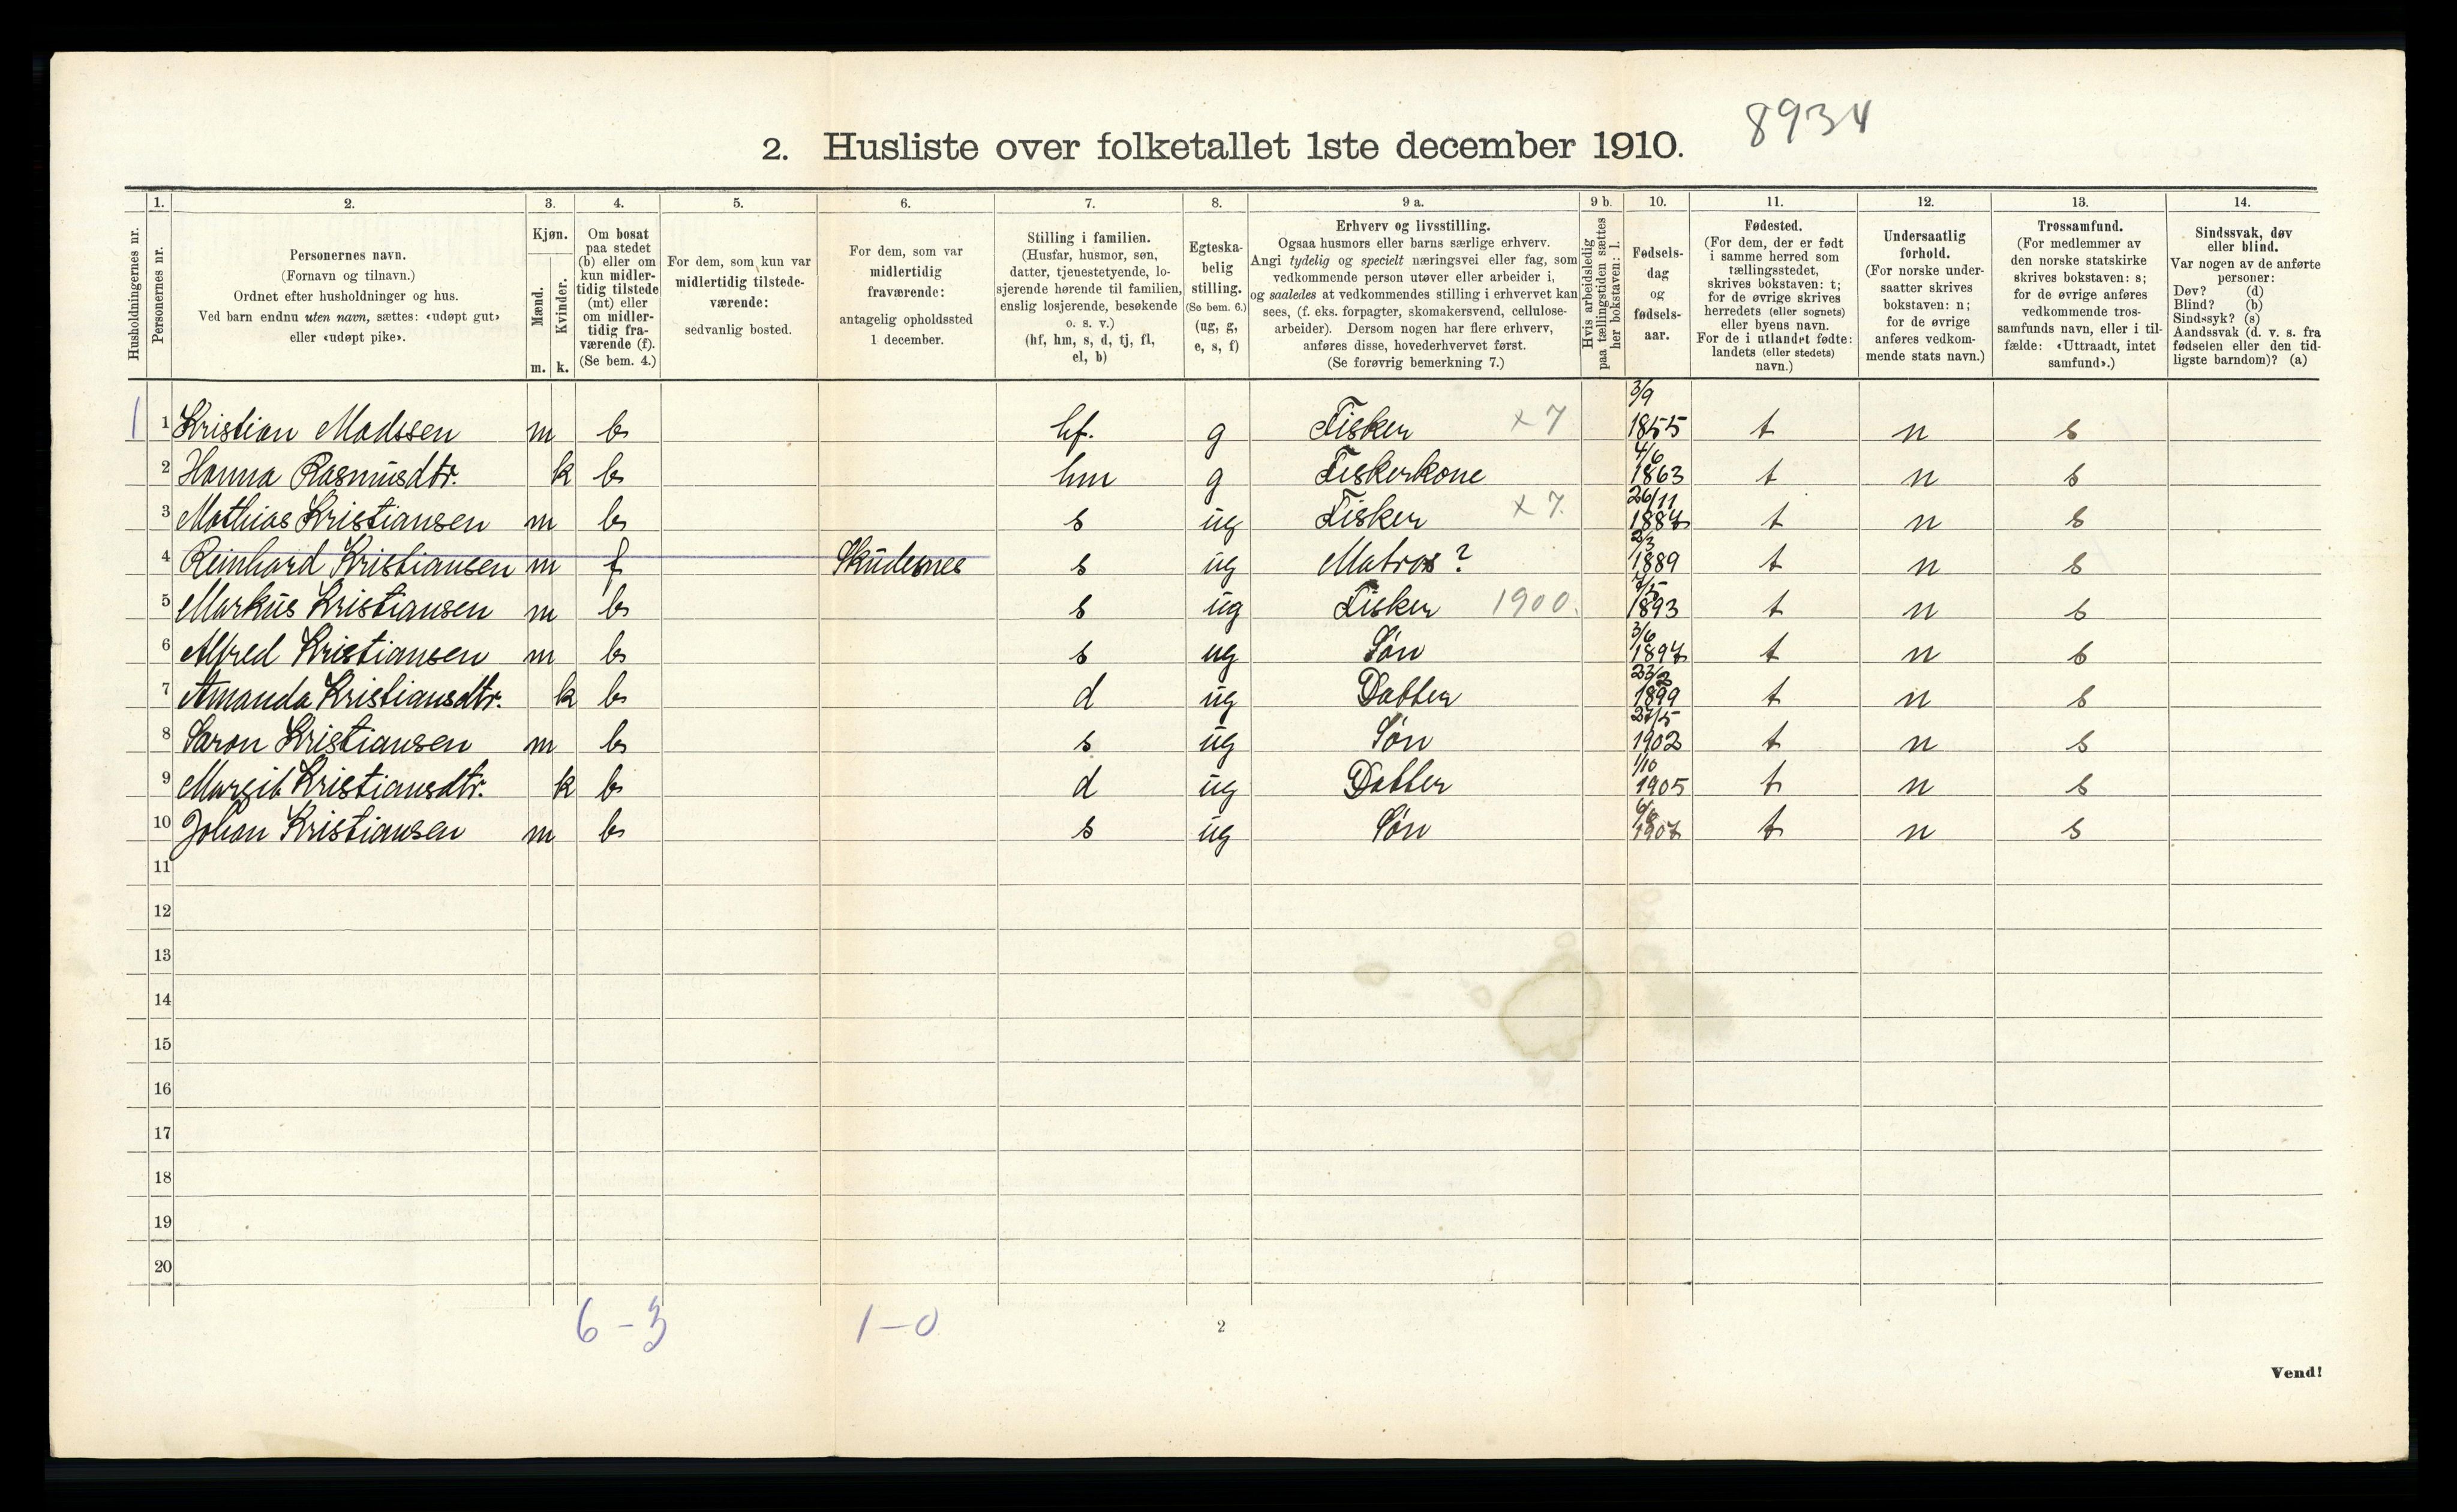 8934
2. Husliste over folketallet 1ste december 1910.
Husholdningernes nr.
1.
Personernes nr.
2.
Personernes navn.
(Fornavn og tilnavn.)
Ordnet efter husholdninger og hus.
Ved barn endnu uten navn, sættes: «udøpt gut»
eller «udøpt pike».
3.
Kjøn.
Mænd.
Kvinder.
m. k.
4.
Om bosat
paa stedet
(b) eller om
kun midler-
tidig tilstede
(mt) eller
om midler-
tidig fra-
værende (f).
(Se bem. 4.)
5.
For dem, som kun var
midlertidig tilstede-
værende:
sedvanlig bosted.
6.
For dem, som var
midlertidig
fraværende:
antagelig opholdssted
1 december.
7.
Stilling i familien.
(Husfar, husmor, søn,
datter, tjenestetyende, lo-
sjerende hørende til familien,
enslig losjerende, besøkende
o. s. v.)
(hf, hm, s, d, tj, fl,
el, b)
8.
Egteska-
belig
stilling.
(Se bem. 6.)
(ug, g,
e, s, f)
9 a.
Erhverv og livsstilling.
Ogsaa husmors eller barns særlige erhverv.
Angi tydelig og specielt næringsvei eller fag, som
vedkommende person utøver eller arbeider i,
og saaledes at vedkommendes stilling i erhvervet kan
sees, (f. eks. forpagter, skomakersvend, cellulose-
arbeider). Dersom nogen har flere erhverv,
anføres disse, hovederhvervet først.
(Se forøvrig bemerkning 7.)
9 b.
Hvis arbeidsledig
paa tællingstiden sættes
her bokstaven: l.
10.
Fødsels-
dag
og
fødsels-
aar.
11.
Fødested.
(For dem, der er født
i samme herred som
tællingsstedet,
skrives bokstaven: t;
for de øvrige skrives
herredets (eller sognets)
eller byens navn.
For de i utlandet fødte:
landets (eller stedets)
navn.)
12.
Undersaatlig
forhold.
(For norske under-
saatter skrives
bokstaven: n;
for de øvrige
anføres vedkom-
mende stats navn.)
13.
Trossamfund.
(For medlemmer av
den norske statskirke
skrives bokstaven: s;
for de øvrige anføres
vedkommende tros-
samfunds navn, eller i til-
fælde: «Uttraadt, intet
samfund».)
14.
Sindssvak, døv
eller blind.
Var nogen av de anførte
personer:
Døv? (d)
Blind? (b)
Sindssyk? (s)
Aandssvak (d. v. s. fra
fødselen eller den tid-
ligste barndom)? (a)
1 1 Kristian Madssen m b hf. g Fisker x 7 3/9 1855 t n s
2 Hanna Rasmusdtr. k b hm g Fiskerkone 4/6 1863 t n s
3 Mathias Kristiansen m b s ug Fisker x 7. 26/11 1887 t n s
4 Reinhard Kristiansen m f Skudesnes s ug Matros? 2/3 1889 t n s
5 Markus Kristiansen m b s ug Fisker 1900. 7/5 1893 t n s
6 Alfred Kristiansen m b s ug Søn 3/6 1897 t n s
7 Amanda Kristiansdtr. k b d ug Datter 23/2 1899 t n s
8 Saron Kristiansen m b s ug Søn 27/5 1902 t n s
9 Margit Kristiansdtr. k b d ug Datter 1/10 1905 t n s
10 Johan Kristiansen m b s ug Søn 1907 t n s
11
12
13
14
15
16
17
18
19
20
6-3 1-0
2
Vend!